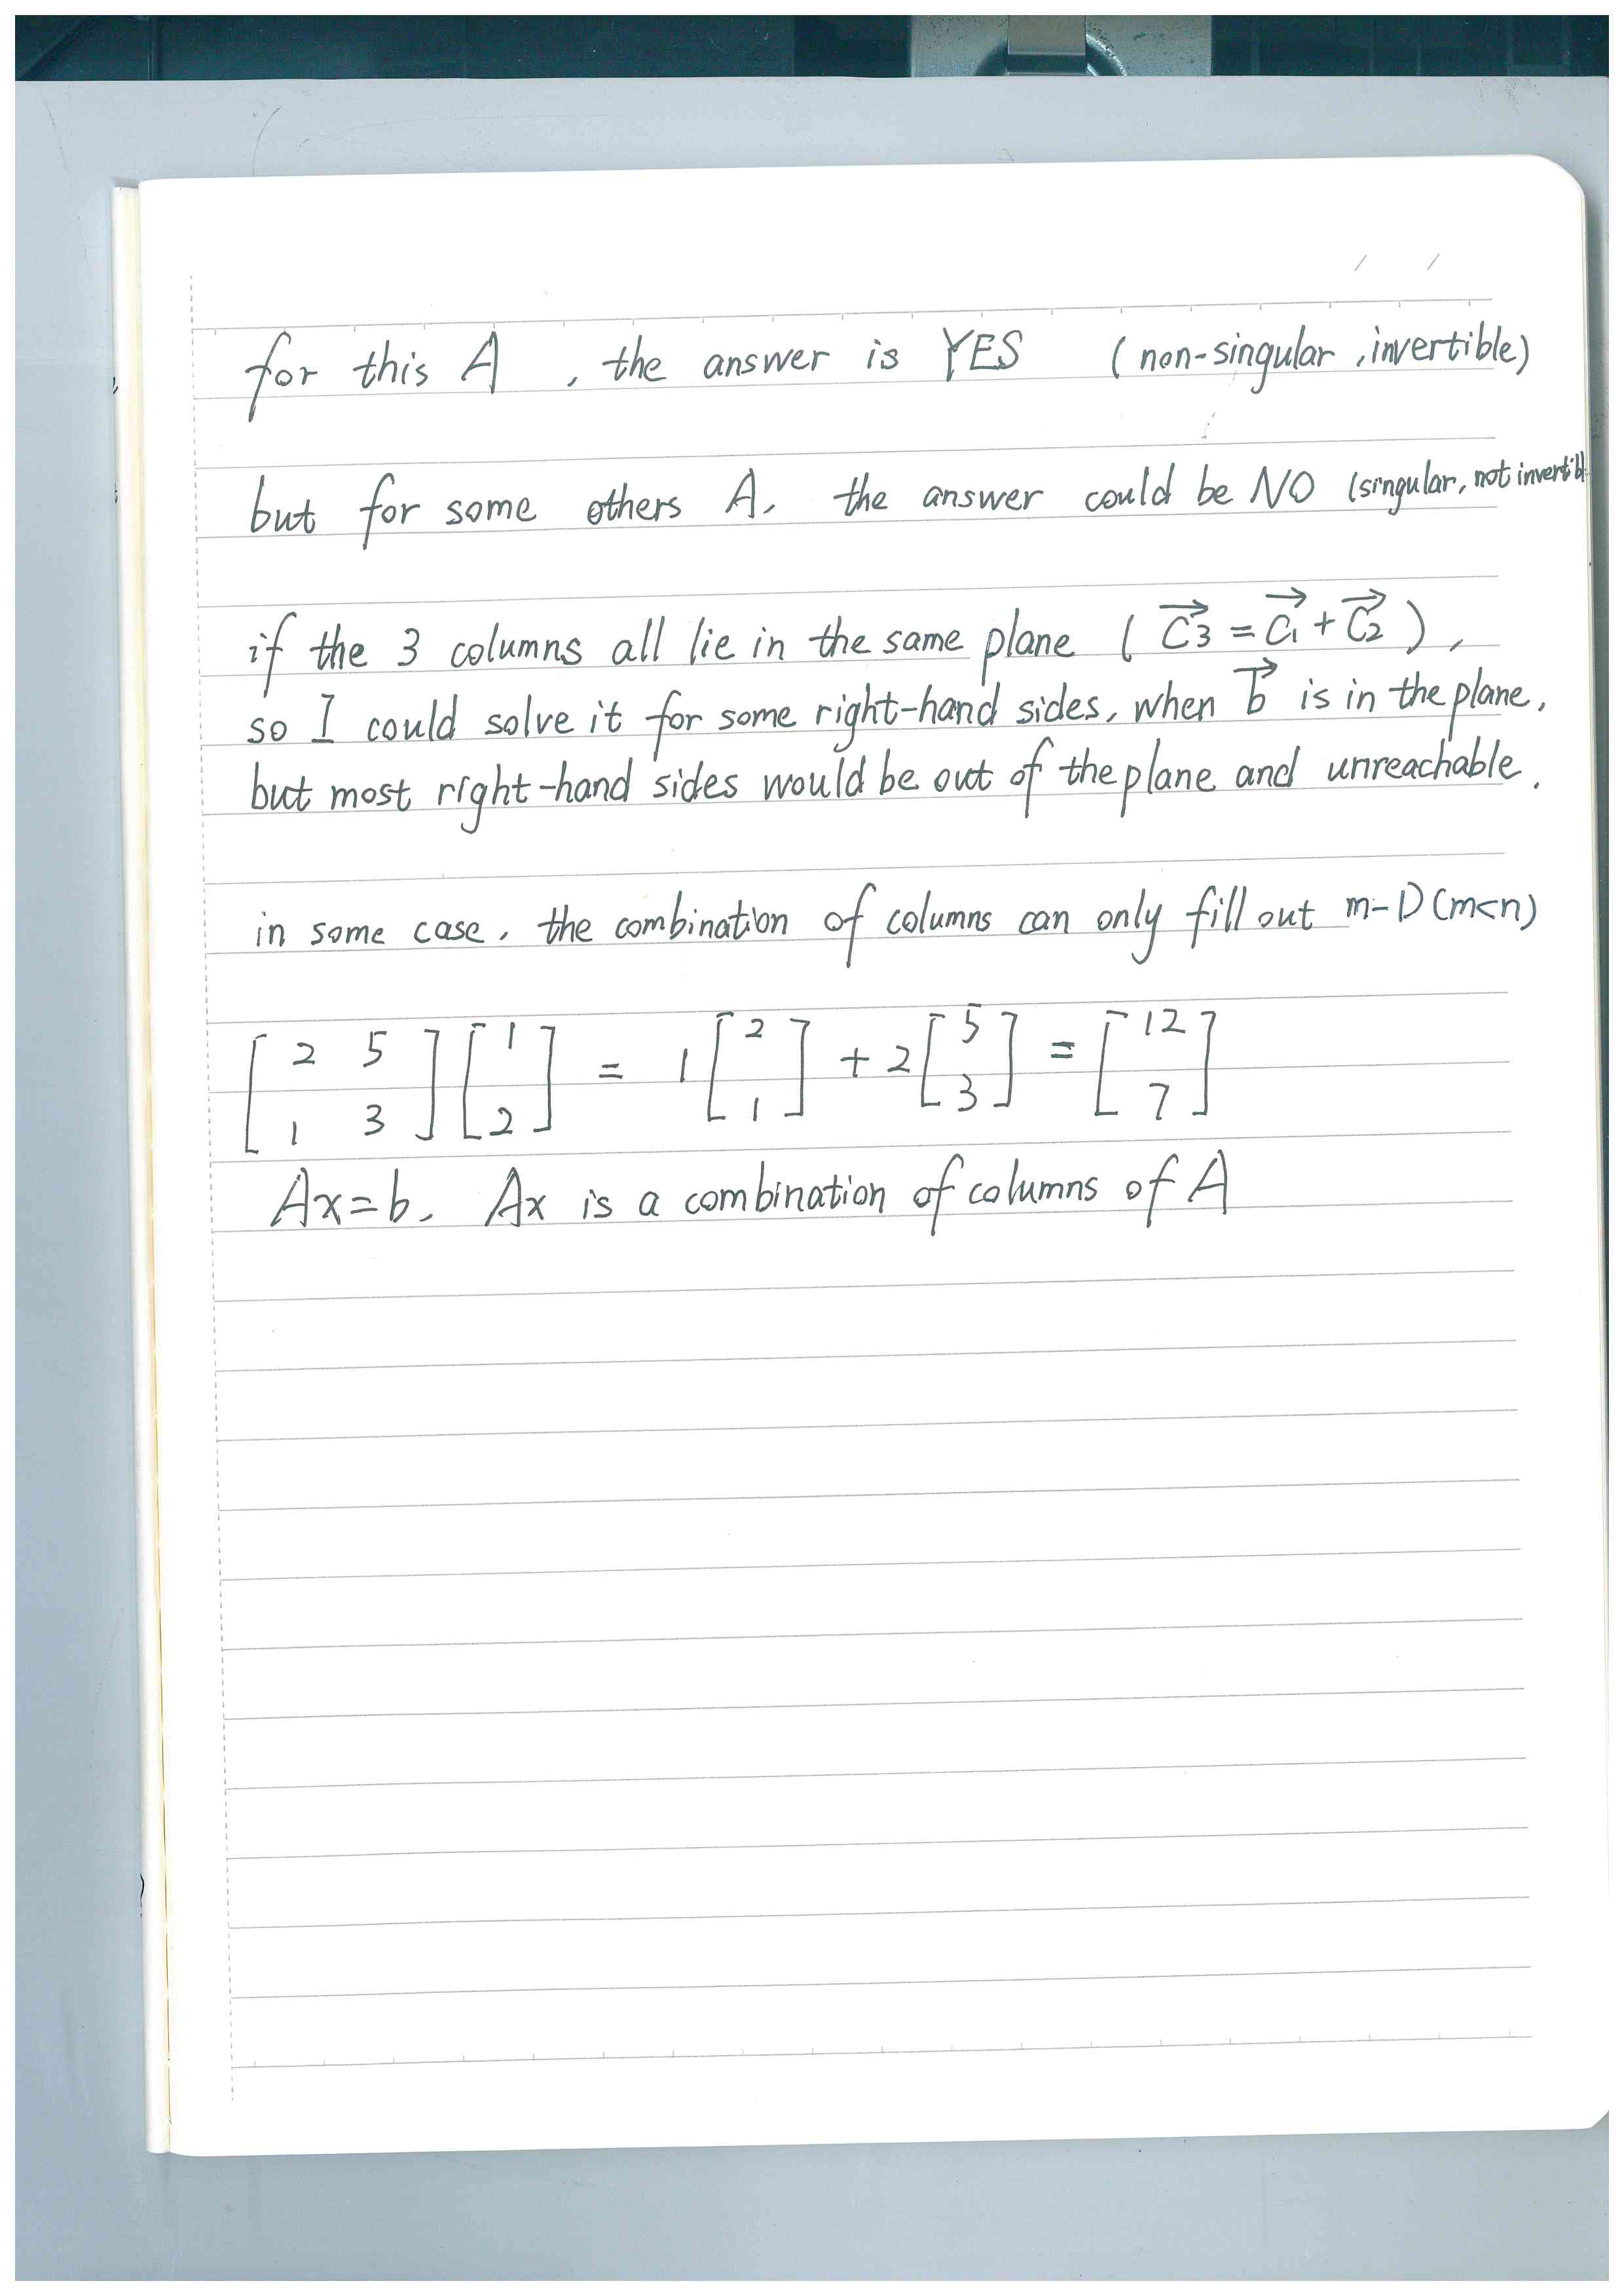 for this A , the answer is YES (non-singular, invertible)
but for some others A, the answer could be NO (singular, not invertibl
if the 3 columns all lie in the same plane ( $\vec{C_3} = \vec{C_1} + \vec{C_2}$ ),
so I could solve it for some right-hand sides, when $\vec{b}$ is in the plane,
but most right-hand sides would be out of the plane and unreachable.
in some case, the combination of columns can only fill out m-D (m<n)
$\begin{bmatrix} 2 & 5 \\ 1 & 3 \end{bmatrix} \begin{bmatrix} 1 \\ 2 \end{bmatrix} = 1 \begin{bmatrix} 2 \\ 1 \end{bmatrix} + 2 \begin{bmatrix} 5 \\ 3 \end{bmatrix} = \begin{bmatrix} 12 \\ 7 \end{bmatrix}$
Ax=b, Ax is a combination of columns of A